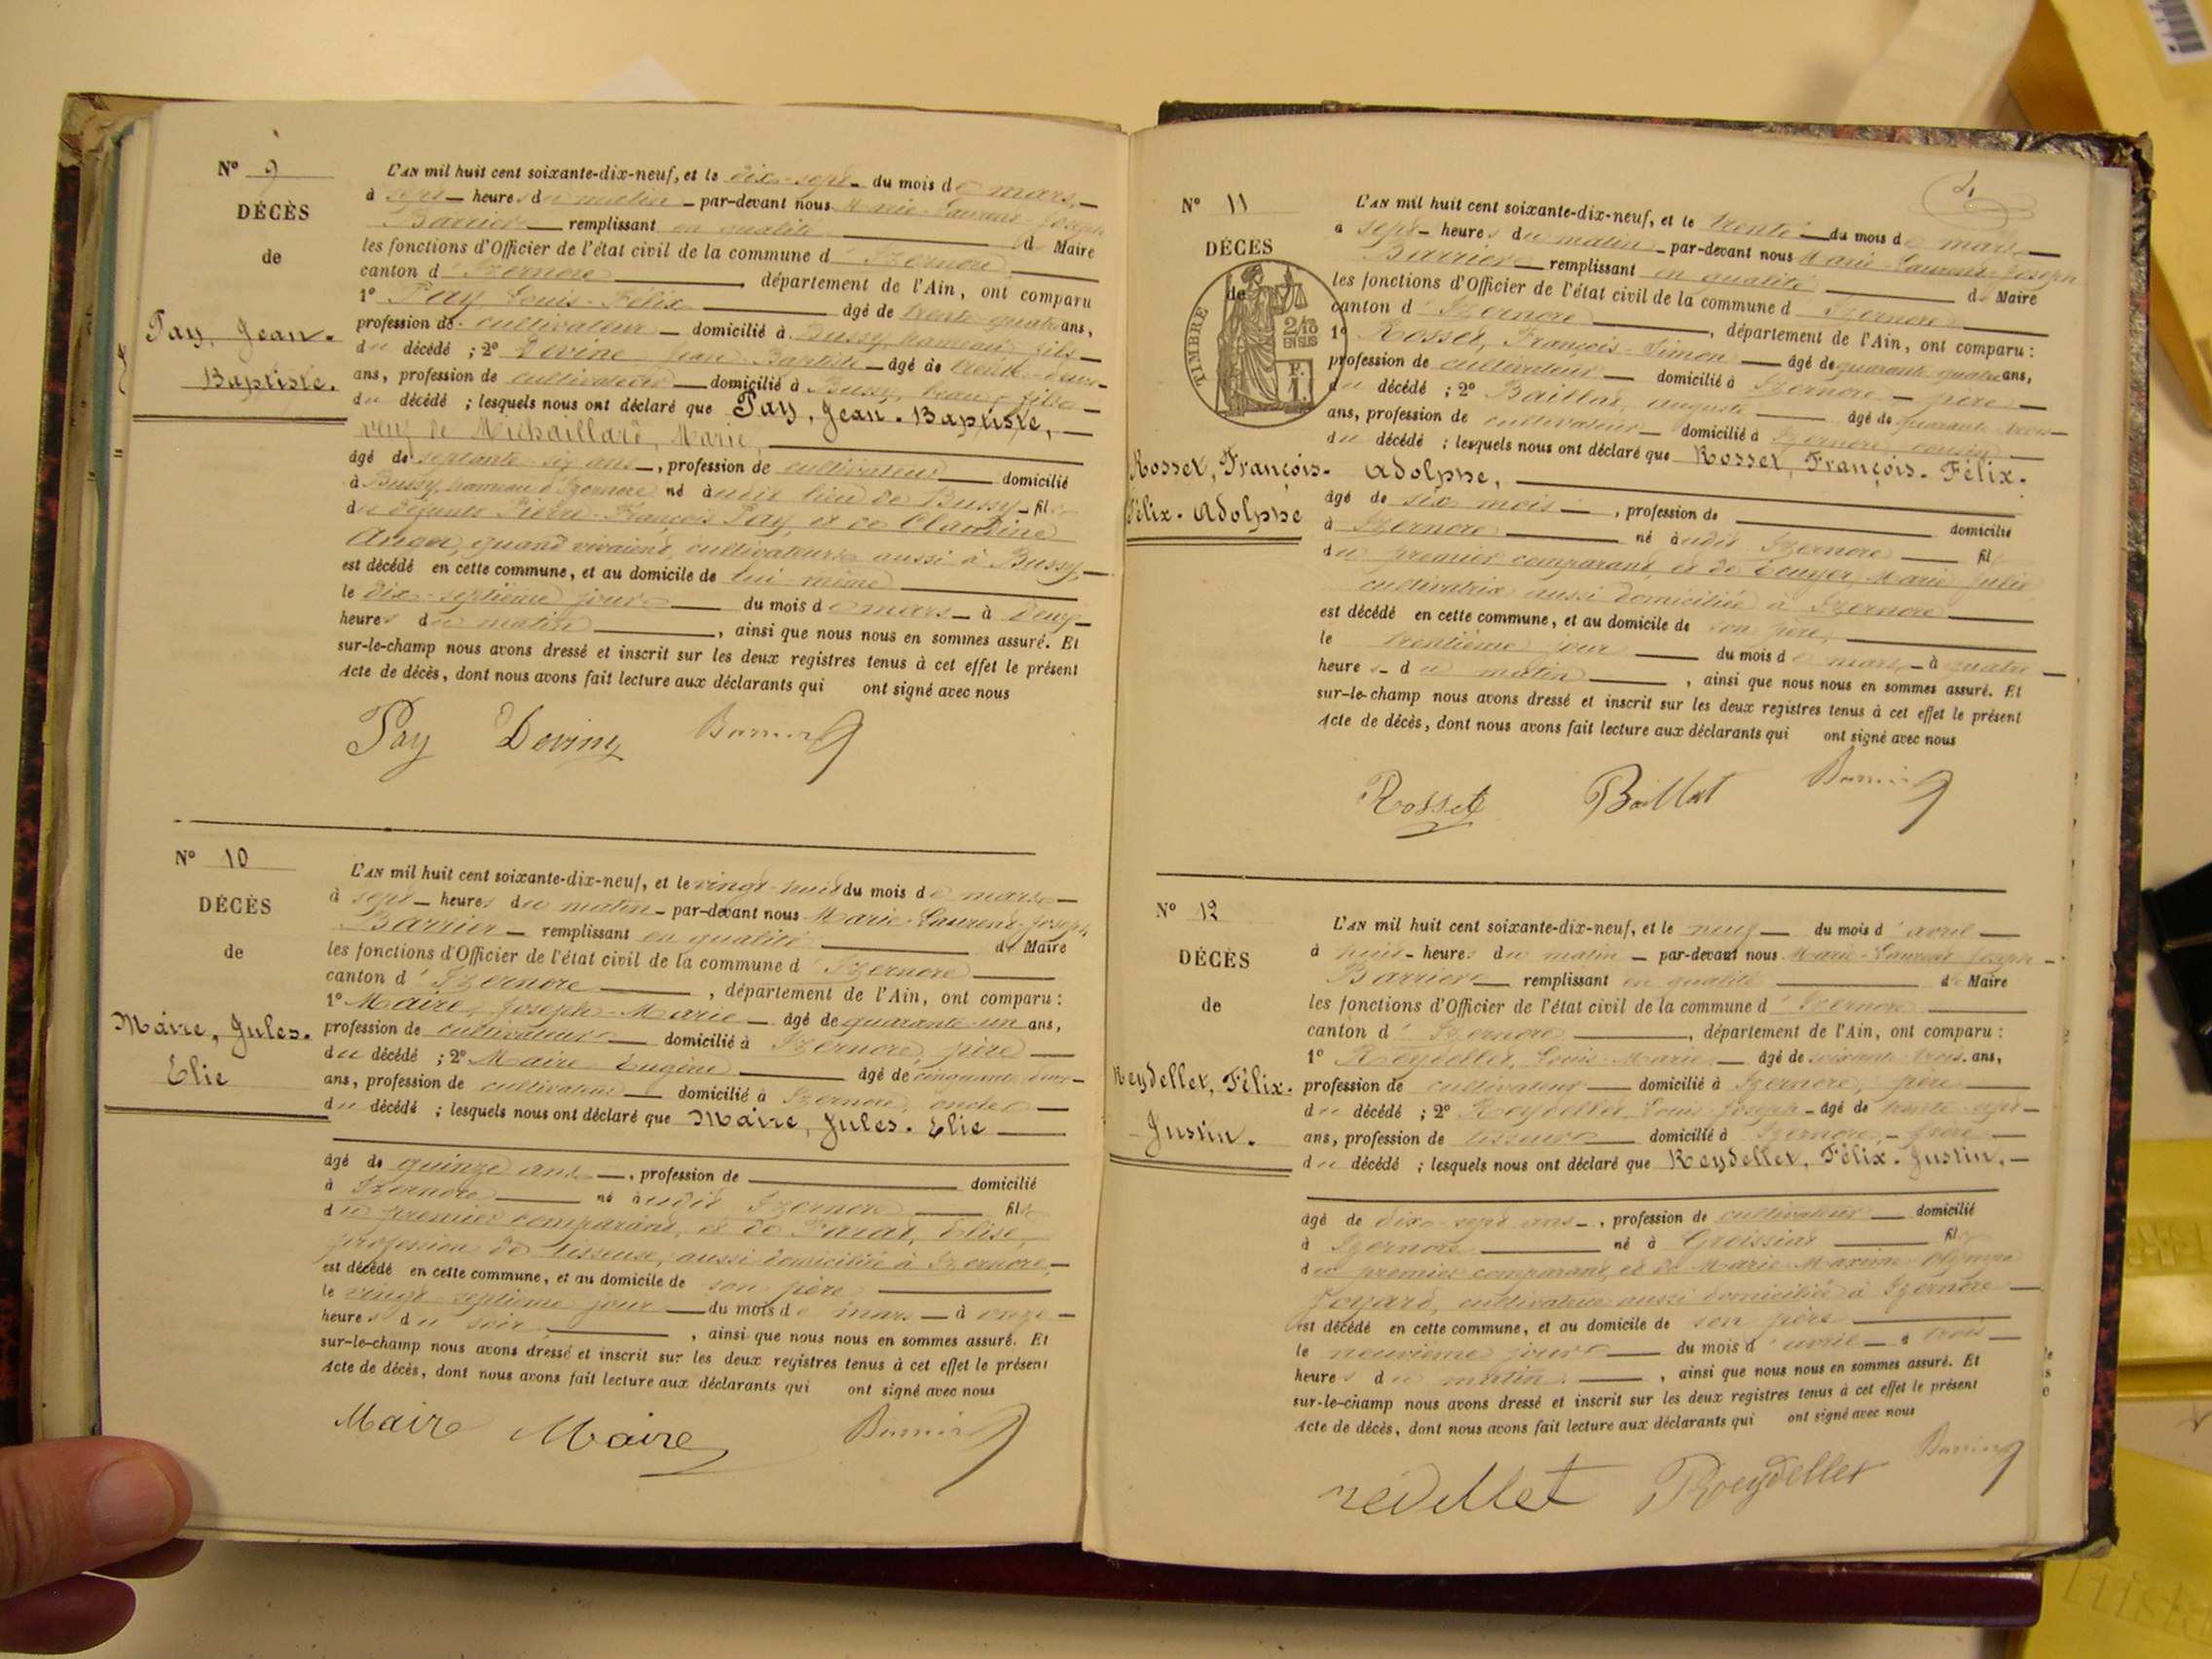 N° 9
DÉCÈS
de
Pay, Jean-
Baptiste.
L'AN mil huit cent soixante-dix-neuf, et le dix-sept du mois de mars,
à sept heures du matin par-devant nous Marie-Laurent-Joseph
Barrier remplissant en qualité de Maire
les fonctions d'Officier de l'état civil de la commune d'Izernore
canton d'Izernore, département de l'Ain, ont comparu
1° Pay Louis-Félix âgé de trente-quatre ans,
profession de cultivateur domicilié à Bussy, hameau, fils
du décédé ; 2° Devine Jean-Baptiste âgé de trente-deux
ans, profession de cultivateur domicilié à Bussy, beau-fils
du décédé ; lesquels nous ont déclaré que Pay, Jean-Baptiste,
veuf de Michaillard, Marie,
âgé de septante-six ans, profession de cultivateur domicilié
à Bussy, hameau d'Izernore né audit lieu de Bussy fils
de défunts Pierre-François Pay, et de Claudine
Anger, quand vivaient, cultivateurs aussi à Bussy,
est décédé en cette commune, et au domicile de lui-même
le dix-septième jour du mois de mars à deux
heures du matin, ainsi que nous nous en sommes assuré. Et
sur-le-champ nous avons dressé et inscrit sur les deux registres tenus à cet effet le présent
Acte de décès, dont nous avons fait lecture aux déclarants qui ont signé avec nous
Pay Devine Barrier
N° 10
DÉCÈS
de
Maire, Jules-
Elie
L'AN mil huit cent soixante-dix-neuf, et le vingt-huit du mois de mars
à sept heures du matin par-devant nous Marie-Laurent-Joseph
Barrier remplissant en qualité de Maire
les fonctions d'Officier de l'état civil de la commune d'Izernore
canton d'Izernore, département de l'Ain, ont comparu :
1° Maire, Joseph-Marie âgé de quarante-un ans,
profession de cultivateur domicilié à Izernore, père
du décédé ; 2° Maire Eugène âgé de cinquante-deux
ans, profession de cultivateur domicilié à Izernore, oncle
du décédé ; lesquels nous ont déclaré que Maire, Jules-Elie
âgé de quinze ans, profession de domicilié
à Izernore né audit Izernore fils
du premier comparant, et de Élise,
profession de tisseuse, aussi domiciliée à Izernore,
est décédé en cette commune, et au domicile de son père
le vingt-septième jour du mois de mars à onze
heures du soir, ainsi que nous nous en sommes assuré. Et
sur-le-champ nous avons dressé et inscrit sur les deux registres tenus à cet effet le présent
Acte de décès, dont nous avons fait lecture aux déclarants qui ont signé avec nous
Maire Maire Barrier
N° 11
DÉCÈS
de
TIMBRE
2/10
EN SUS
F.
1.
Rosset, François-
Félix-Adolphe
L'AN mil huit cent soixante-dix-neuf, et le trente du mois de mars
à sept heures du matin par-devant nous Marie-Laurent-Joseph
Barrier remplissant en qualité de Maire
les fonctions d'Officier de l'état civil de la commune d'Izernore
canton d'Izernore, département de l'Ain, ont comparu :
1° Rosset, François-Simon âgé de quarante-quatre ans,
profession de cultivateur domicilié à Izernore père
du décédé ; 2° Baillat, Auguste âgé de quarante-trois
ans, profession de cultivateur domicilié à Izernore, cousin
du décédé ; lesquels nous ont déclaré que Rosset, François-Félix-
Adolphe,
âgé de six mois, profession de domicilié
à Izernore né audit Izernore fils
du premier comparant, et de Écuyer, Marie-Julie
cultivatrice aussi domiciliée à Izernore
est décédé en cette commune, et au domicile de son père,
le trentième jour du mois de mars à quatre
heures du matin, ainsi que nous nous en sommes assuré. Et
sur-le-champ nous avons dressé et inscrit sur les deux registres tenus à cet effet le présent
Acte de décès, dont nous avons fait lecture aux déclarants qui ont signé avec nous
Rosset Baillat Barrier
N° 12
DÉCÈS
de
Reydellet, Félix-
Justin.
L'AN mil huit cent soixante-dix-neuf, et le neuf du mois d'avril
à huit heures du matin par-devant nous Marie-Laurent-Joseph
Barrier remplissant en qualité de Maire
les fonctions d'Officier de l'état civil de la commune d'Izernore
canton d'Izernore, département de l'Ain, ont comparu :
1° Reydellet, Louis-Marie âgé de soixante-trois ans,
profession de cultivateur domicilié à Izernore, père
du décédé ; 2° Reydellet Louis-Joseph âgé de trente-sept
ans, profession de tisseur domicilié à Izernore, frère
du décédé ; lesquels nous ont déclaré que Reydellet, Félix-Justin,
âgé de dix-sept ans, profession de cultivateur domicilié
à Izernore né à Groissiat fils
du premier comparant, et de Marie-Maxime-Olympe
Joyard, cultivatrice aussi domiciliée à Izernore
est décédé en cette commune, et au domicile de son père
le neuvième jour du mois d'avril à trois
heures du matin, ainsi que nous nous en sommes assuré. Et
sur-le-champ nous avons dressé et inscrit sur les deux registres tenus à cet effet le présent
Acte de décès, dont nous avons fait lecture aux déclarants qui ont signé avec nous
redellet Reydellet Barrier